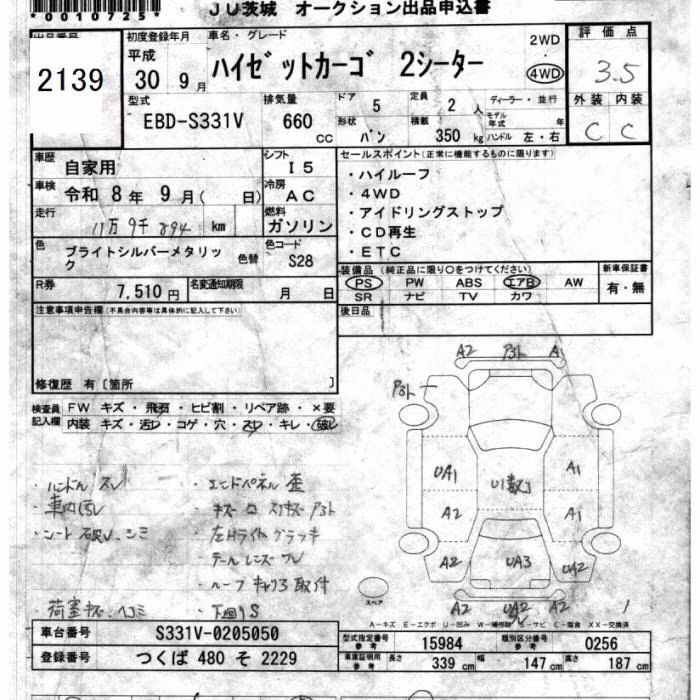 *0010725*
JU茨城 オークション出品申込書
出品番号
2139
初度登録年月
平成
30 9月
車名・グレード
ハイゼットカーゴ 2シーター
2WD
4WD
評価点
3.5
外装 内装
C C
型式
EBD-S331V
排気量
660 cc
ドア 5
定員 2人
ディーラー・並行
形状 バン
積載 350 kg
モデル年式 年
ハンドル 左・右
車歴 自家用
シフト I5
車検 令和 8年 9月( 日)
冷房 AC
走行 11万9千894 km
燃料 ガソリン
色 ブライトシルバーメタリック
色替
色コード S28
R券 7,510円
名変通知期限 月 日
セールスポイント(正常に機能するものに限ります)
・ハイルーフ
・4WD
・アイドリングストップ
・CD再生
・ETC
装備品(純正品に限り○をつけてください)
PS PW ABS エアB AW
SR ナビ TV カワ
新車保証書
有・無
後日品
注意事項申告欄(不具合内容等は具体的に記入して下さい)
修復歴 有〔箇所 〕
検査員記入欄
FW キズ・飛石・ヒビ割・リペア跡・×要
内装 キズ・汚レ・コゲ・穴・スレ・キレ・破レ
・ハンドル スレ
・車内汚レ
・シート破レ、シミ
・荷室キズ・ヘコミ
・エンドパネル 歪
・左Hライト クラッキ
・テールレンズ ワレ
・ルーフ キャリア 取付
・下廻りS
A2 P3ト A1
P3ト
UA1
A2
A2
U1数コ
UA3
A1
A1
UA2
A2 UA2 A2
スペア
A−キズ E−エクボ U−凹み W−補修跡 S−サビ C−腐食 XX−交換済
車台番号 S331V-0205050
登録番号 つくば 480 そ 2229
型式指定番号 参考 15984
類別区分番号 参考 0256
車車証明用 参考 長さ 339 cm 幅 147 cm 高さ 187 cm